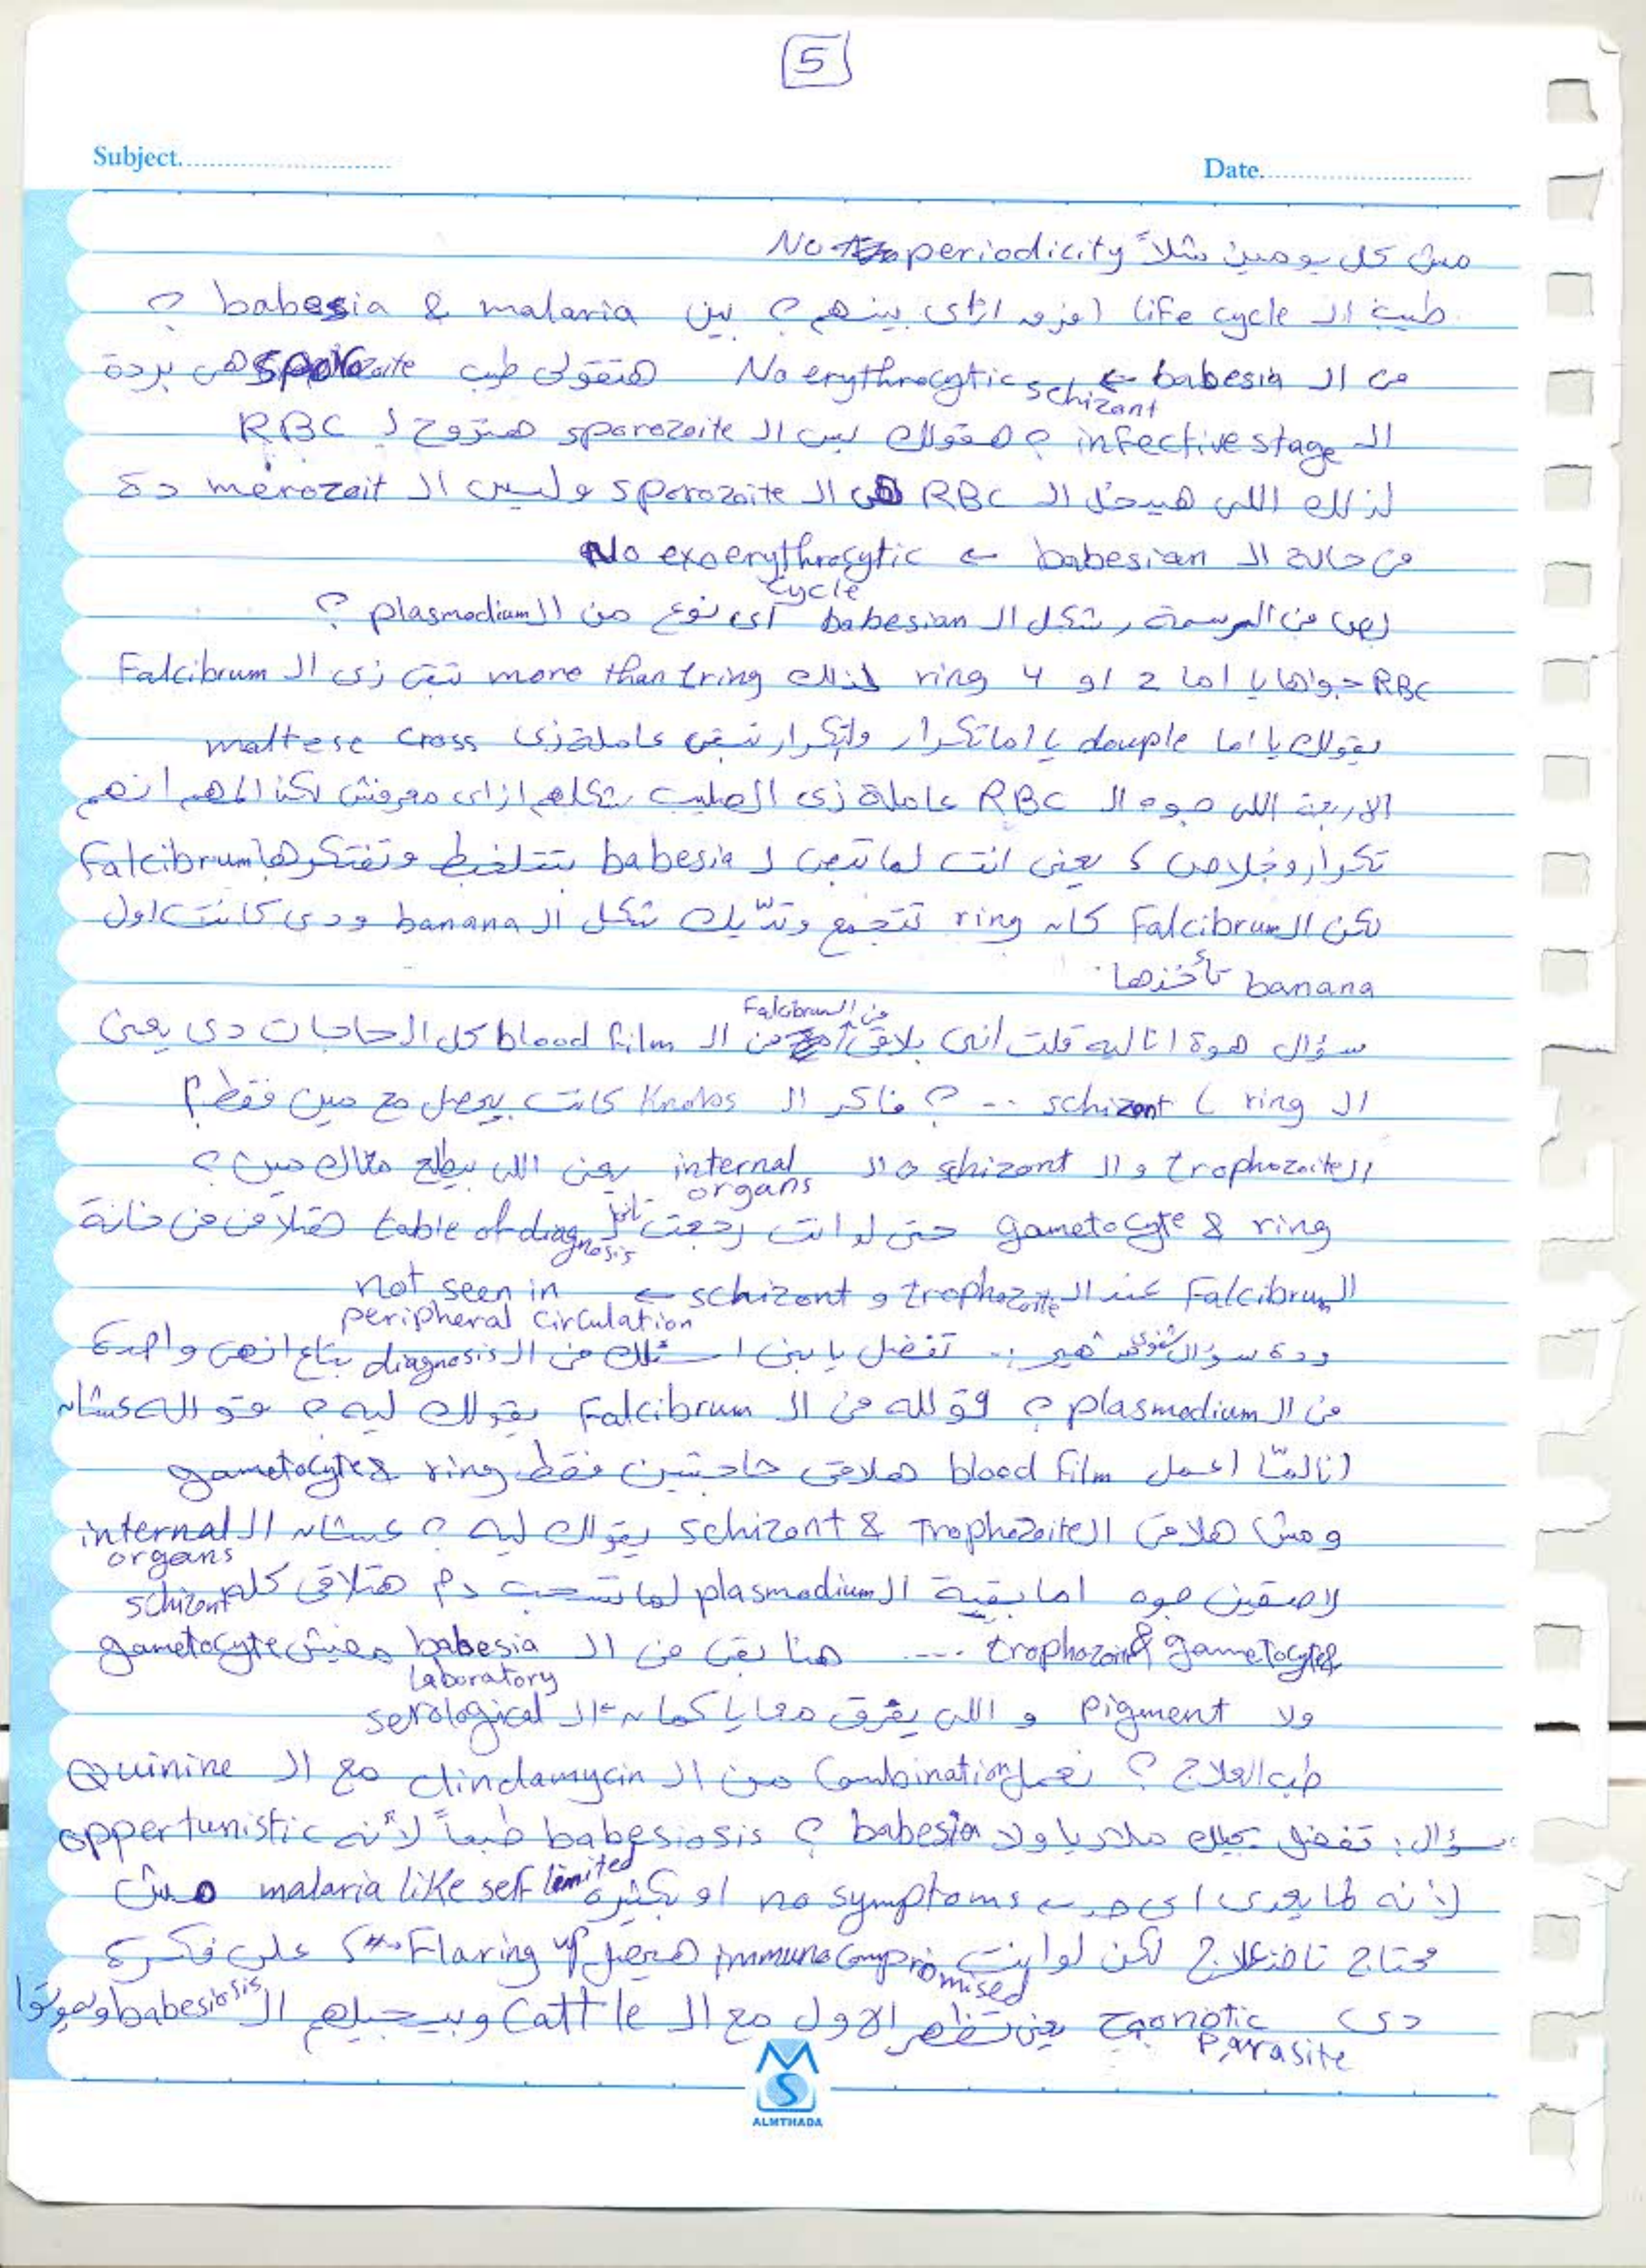 5
Subject.
Date.
مش كل يومين مثلاً No periodicity
طيب ال life cycle افرق ازاى بينهم ؟ بين babesia & malaria ؟
فى ال babesia ← No erythrocytic schizont هتقولى طيب sporozoite هى بردة
ال infective stage ؟ هقولك بس ال sporozoite هتروح ل RBC
لذلك اللى هيدخل ال RBC هى ال sporozoite وليس ال merozoit دة
فى حالة ال babesian ← No exoerythrocytic cycle
بص فى الرسمة شكل ال babesian اى نوع من ال plasmodium ؟
RBC جواها يا اما 2 او 4 ring لذلك more than 1 ring تبقى زى ال Falcibrum
يقولك يا اما douple يا اما تكرار والتكرار تبقى عاملة زى maltese cross
الاربعة اللى جوه ال RBC عاملة زى الصليب شكلهم ازاى معرفش لكن المهم انهم
تكرار وخلاص ، يعنى انت لما تبص ل babesia بتتلخبط وتفتكرها Falcibrum
لكن ال Falcibrum كان ring تتجمع وتديك شكل ال banana ودى كانت اول
banana تأخذها .
سؤال هوة انا ليه قلت انى بلاقى فى ال Falcibrum فى ال blood film كل الحاجات دى يعنى
ال ring ، schizont ... ؟ فاكر ال Knobs كانت بيحصل مع مين فقط ؟
ال trophozoite و ال schizont و ال internal organs يعنى اللى يطلع معاك مين ؟
gametocyte & ring حتى لو انت رجعت table of diagnosis هتلاقى فى خانة
ال Falcibrum عند ال trophozoite و schizont ← not seen in peripheral circulation
ودة سؤال شفوى شهير .. تفضل يابنى اسئلك فى ال diagnosis بتاع انهى واحدة
فى ال plasmodium ؟ قوله فى ال Falcibrum يقولك ليه ؟ قوله عشان
انا لما اعمل blood film هلاقى حاجتين فقط ring & gametocyte
ومش هلاقى ال Trophozoite & schizont يقولك ليه ؟ عشان ال internal organs
لاصقين جوه اما بقية ال plasmodium لما تسحب دم هتلاقى كله schizont
gametocyte & trophozoite ... هنا بقى فى ال babesia مفيش gametocyte
ولا pigment و اللى يفرق معايا كمان ال serological laboratory
طب العلاج ؟ نعمل Combination من ال clindamycin مع ال Quinine
سؤال : تفضل يجيلك ملاريا ولا babesia ؟ babesiosis طبعاً لأنه oppertunistic
لأنه لما يعدى اى حد ← no symptoms او بكتيره malaria like self limited مش
محتاج تاخد علاج لكن لو انت immunocompromised هيحصل Flaring up على فكرة
دى zoonotic parasite يعنى تظهر الاول مع ال Cattle وبيجيلهم ال babesiosis ويموتوا
MS
ALMTHADA